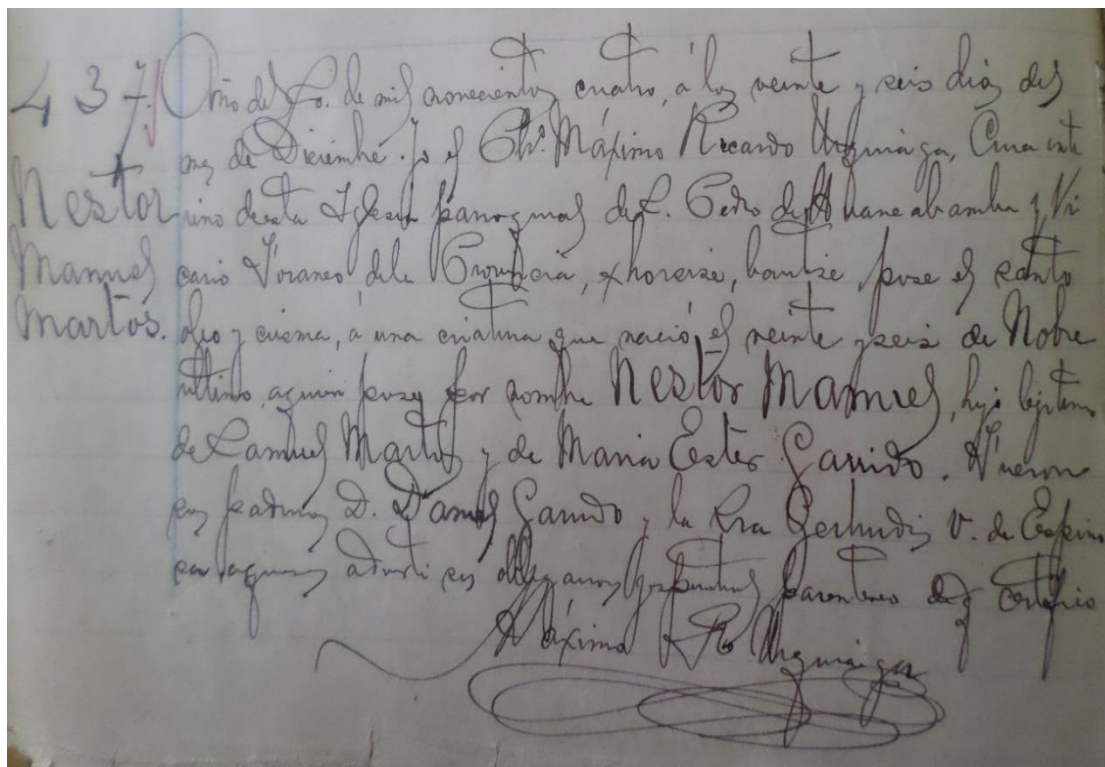 437. Año del Sr. de mil novecientos cuatro, á los veinte y seis dias del
mes de Diciembre. Yo el Pbr. Máximo Ricardo Urquiaga, Cura inte
Nestor rino de esta Iglesia parroquial de S. Pedro de Huancabamba y Vi
Manuel cario Foraneo de la Provincia, exhorcisé, bautisé puse el santo
Martos. oleo y crisma, á una criatura que nació el veinte y seis de Nobre
ultimo, a quien puse por nombre Nestor Manuel, hijo legitimo
de Samuel Martos y de Maria Ester Garrido. Fueron
sus padrinos D. Daniel Garrido y la Sra Gertrudis V. de Espino
sa a quienes adverti sus obligaciones y espiritual parentesco de q certifico
Máximo Rdo Urquiaga